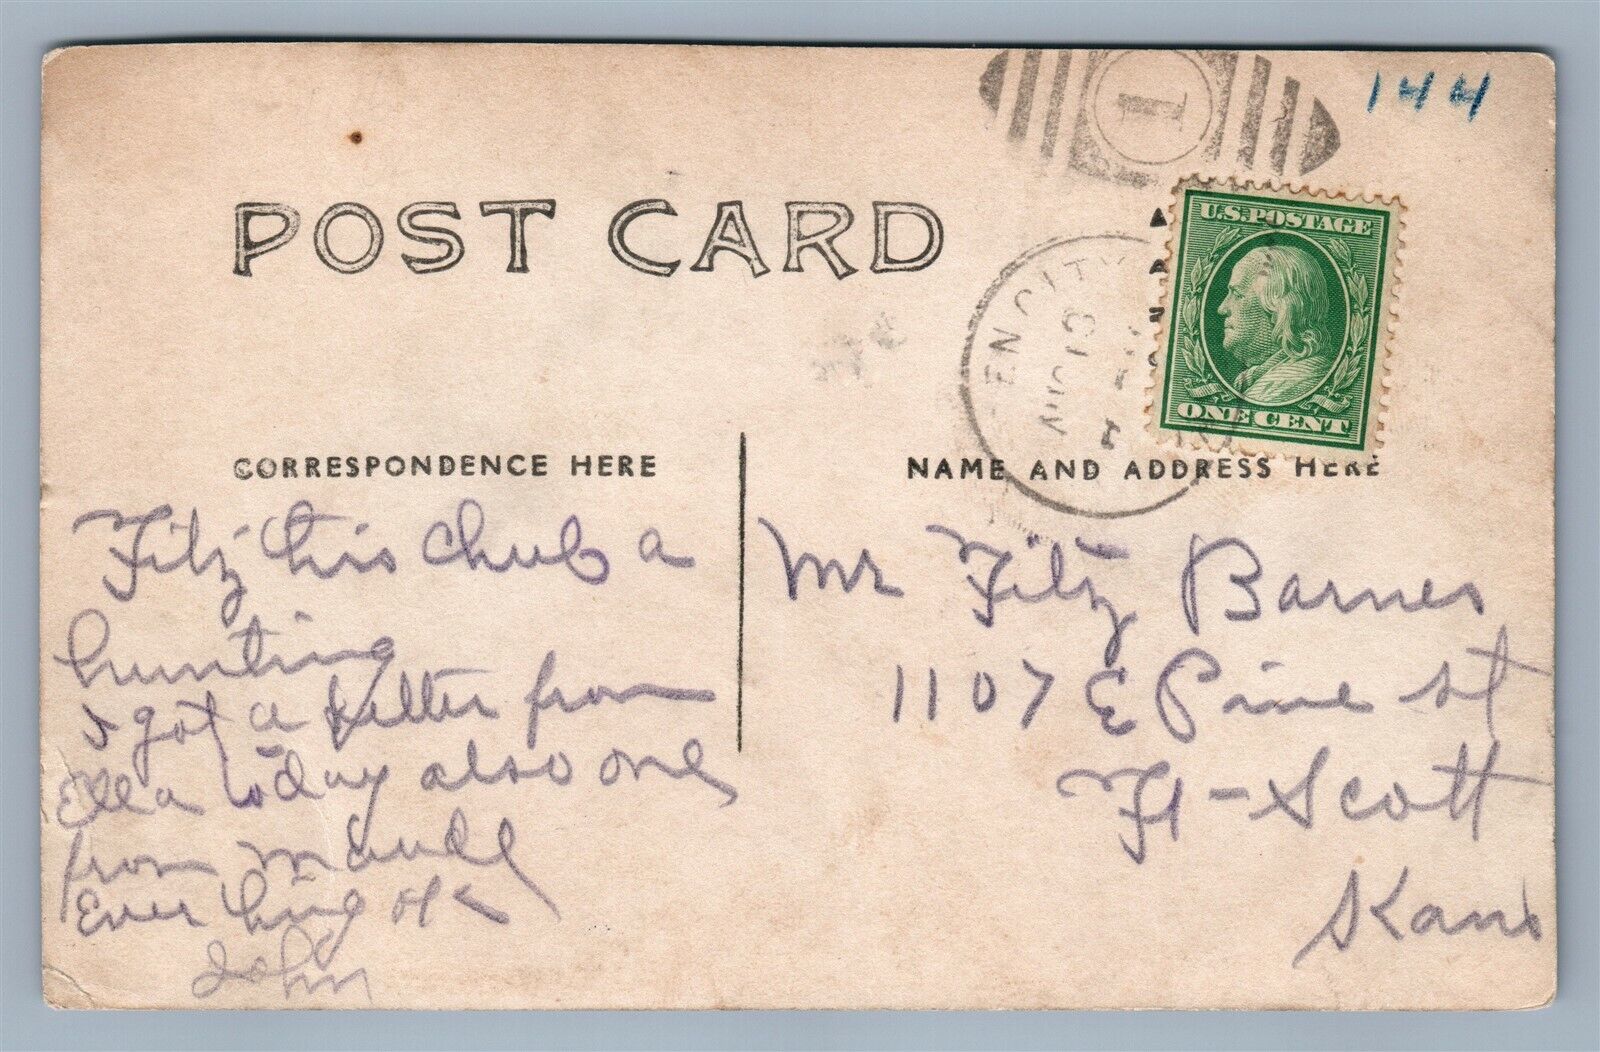 144
1
U.S. POSTAGE
ONE CENT
POST CARD
EN CITY
AUG 13
CORRESPONDENCE HERE
NAME AND ADDRESS HERE
Fitz this Chub a
hunting
I got a letter from
Ella today also one
from Maude
Ever thing ok
John
Mr Fitz Barnes
1107 E Pine st
Ft - Scott
Kans